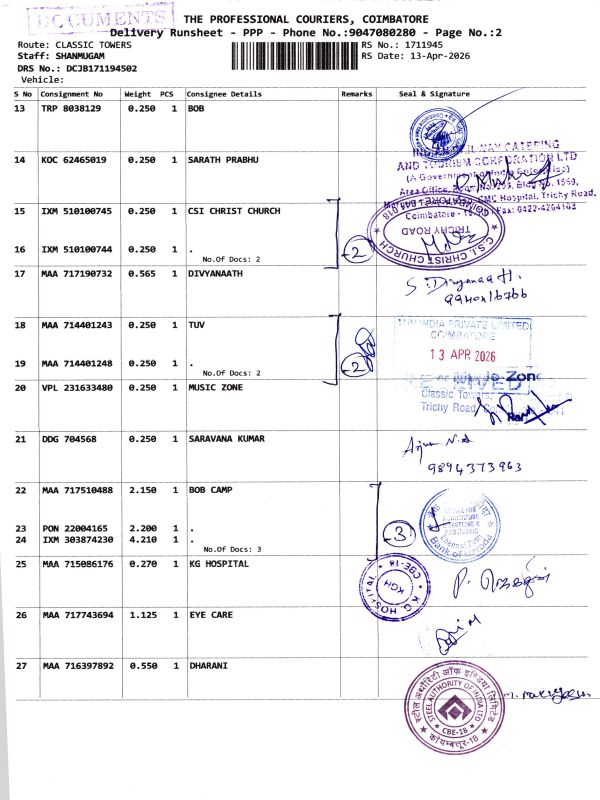 DOCUMENTS
THE PROFESSIONAL COURIERS, COIMBATORE
Delivery Runsheet - PPP - Phone No.:9047080280 - Page No.:2
Route: CLASSIC TOWERS
RS No.: 1711945
Staff: SHANMUGAM
RS Date: 13-Apr-2026
DRS No.: DCJB171194502
Vehicle:
S No Consignment No Weight PCS Consignee Details Remarks Seal & Signature
13 TRP 8038129 0.250 1 BOB
14 KOC 62465019 0.250 1 SARATH PRABHU
RAILWAY CATERING
AND TOURISM CORPORATION LTD
15 IXM 510100745 0.250 1 CSI CHRIST CHURCH
C.S.I. CHRIST CHURCH
TRICHY ROAD
COIMBATORE - 641 018
16 IXM 510100744 0.250 1 .
No.Of Docs: 2
2
17 MAA 717190732 0.565 1 DIVYANAATH
S. Divyanaath.
18 MAA 714401243 0.250 1 TUV
TUV INDIA PRIVATE LIMITED
COIMBATORE
13 APR 2026
19 MAA 714401248 0.250 1 .
No.Of Docs: 2
2
20 VPL 231633480 0.250 1 MUSIC ZONE
Classic Towers
Trichy Road
21 DDG 704568 0.250 1 SARAVANA KUMAR
9894373963
22 MAA 717510488 2.150 1 BOB CAMP
Bank of Baroda
23 PON 22004165 2.200 1 .
24 IXM 303874230 4.210 1 .
No.Of Docs: 3
3
25 MAA 715086176 0.270 1 KG HOSPITAL
K.G. HOSPITAL
CBE-18
KGH
26 MAA 717743694 1.125 1 EYE CARE
27 MAA 716397892 0.550 1 DHARANI
स्टील अथॉरिटी ऑफ इण्डिया लिमिटेड
STEEL AUTHORITY OF INDIA LTD
CBE-18
कोयम्बत्तूर-18